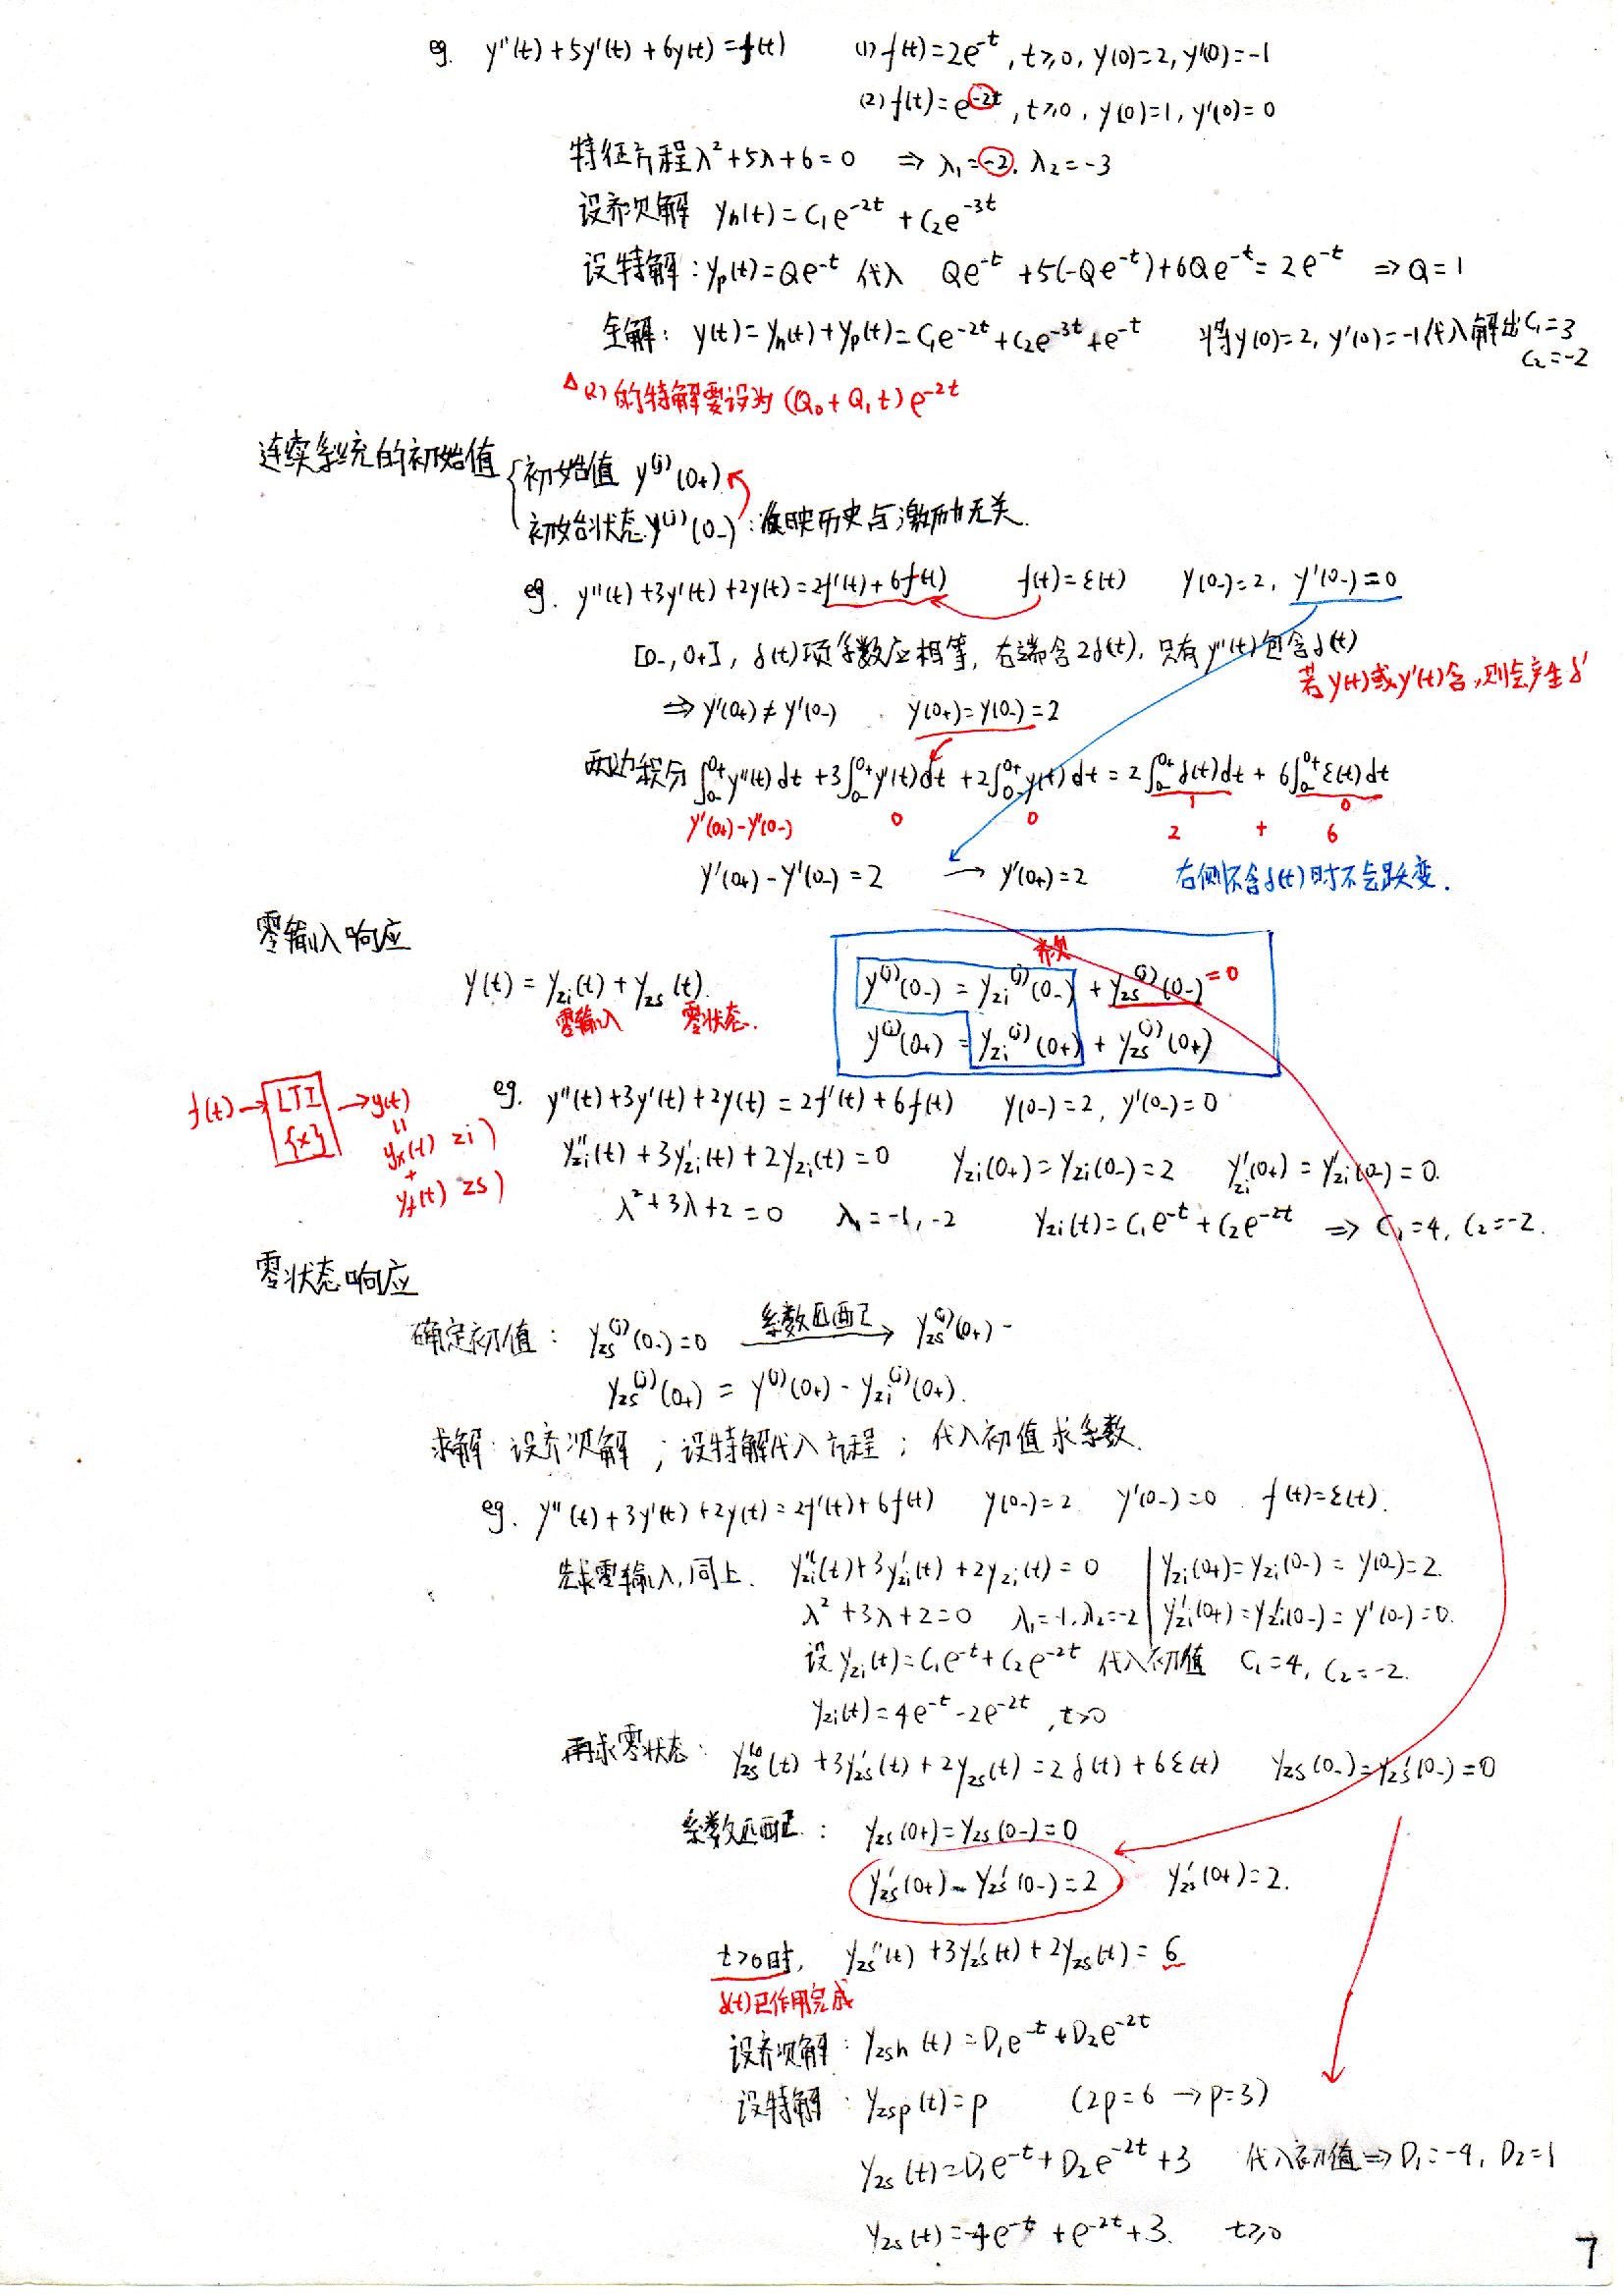 eg. y''(t)+5y'(t)+6y(t)=f(t) (1) f(t)=2e^{-t}, t≥0, y(0)=2, y'(0)=-1
(2) f(t)=e^{-2t}, t≥0, y(0)=1, y'(0)=0
特征方程λ²+5λ+6=0 ⇒ λ₁=-2. λ₂=-3
设齐次解 yh(t)=C₁e^{-2t}+C₂e^{-3t}
设特解: yp(t)=Qe^{-t} 代入 Qe^{-t}+5(-Qe^{-t})+6Qe^{-t}=2e^{-t} ⇒Q=1
全解: y(t)=yh(t)+yp(t)=C₁e^{-2t}+C₂e^{-3t}+e^{-t} 将y(0)=2, y'(0)=-1代入解出C₁=3
C₂=-2
Δ (2)的特解要设为 (Q₀+Q₁t)e^{-2t}
连续系统的初始值
初始值 y^{(j)}(0+)
初始状态 y^{(j)}(0-): 反映历史与激励无关.
eg. y''(t)+3y'(t)+2y(t)=2f'(t)+6f(t) f(t)=ε(t) y(0-)=2, y'(0-)=0
[0-,0+], δ(t)项系数应相等, 右端含2δ(t), 只有y''(t)包含δ(t)
若y(t)或y'(t)含,则会产生δ'
⇒ y'(0+)≠y'(0-) y(0+)=y(0-)=2
两边积分 ∫_{0-}^{0+}y''(t)dt+3∫_{0-}^{0+}y'(t)dt+2∫_{0-}^{0+}y(t)dt=2∫_{0-}^{0+}δ(t)dt+6∫_{0-}^{0+}ε(t)dt
1 0
y'(0+)-y'(0-) 0 0 2 + 6
y'(0+)-y'(0-)=2 → y'(0+)=2 右侧不含δ(t)时不会跃变.
零输入响应
齐次
y(t)=yzi(t)+yzs(t). y^{(j)}(0-)=yzi^{(j)}(0-)+yzs^{(j)}(0-)=0
零输入 零状态.
y^{(j)}(0+)=yzi^{(j)}(0+)+yzs^{(j)}(0+)
f(t)→ LTI {x} →y(t)
=
yx(t) zi)
+
yf(t) zs)
eg. y''(t)+3y'(t)+2y(t)=2f'(t)+6f(t) y(0-)=2, y'(0-)=0
yzi''(t)+3yzi'(t)+2yzi(t)=0 yzi(0+)=yzi(0-)=2 yzi'(0+)=yzi'(0-)=0.
λ²+3λ+2=0 λ₁=-1,-2 yzi(t)=C₁e^{-t}+C₂e^{-2t} ⇒ C₁=4, C₂=-2.
零状态响应
确定初值: yzs^{(j)}(0-)=0 系数匹配→ yzs^{(j)}(0+)-
yzs^{(j)}(0+)=y^{(j)}(0+)-yzi^{(j)}(0+).
求解: 设齐次解; 设特解代入方程; 代入初值求系数.
eg. y''(t)+3y'(t)+2y(t)=2f'(t)+6f(t) y(0-)=2 y'(0-)=0. f(t)=ε(t).
先求零输入,同上. yzi''(t)+3yzi'(t)+2yzi(t)=0 yzi(0+)=yzi(0-)=y(0-)=2.
λ²+3λ+2=0 λ₁=-1.λ₂=-2 yzi'(0+)=yzi'(0-)=y'(0-)=0.
设yzi(t)=C₁e^{-t}+C₂e^{-2t} 代入初值 C₁=4, C₂=-2.
yzi(t)=4e^{-t}-2e^{-2t}, t>0
再求零状态: yzs''(t)+3yzs'(t)+2yzs(t)=2δ(t)+6ε(t) yzs(0-)=yzs'(0-)=0
系数匹配: yzs(0+)=yzs(0-)=0
yzs'(0+)-yzs'(0-)=2 yzs'(0+)=2.
t>0时, yzs''(t)+3yzs'(t)+2yzs(t)=6
δ(t)已作用完成
设齐次解: yzsh(t)=D₁e^{-t}+D₂e^{-2t}
设特解: yzsp(t)=p (2p=6→p=3)
yzs(t)=D₁e^{-t}+D₂e^{-2t}+3 代入初值⇒D₁=-4, D₂=1
yzs(t)=-4e^{-t}+e^{-2t}+3. t≥0
7